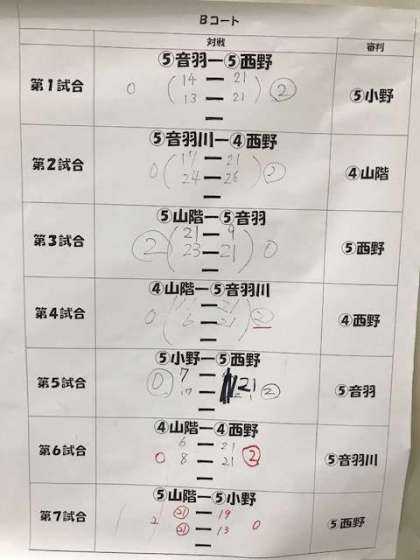 Bコート
対戦 審判
⑤音羽ー⑤西野
14 ー 21
第1試合 0 ② ⑤小野
13 ー 21
⑤音羽川ー④西野
17 ー 21
第2試合 0 ② ④山階
24 ー 26
ー
⑤山階ー⑤音羽
21 ー 9
第3試合 ② 0 ⑤西野
23 ー 21
ー
④山階ー⑤音羽川
第4試合 0 6 ー 21 ② ④西野
ー
⑤小野ー⑤西野
7 ー 21
第5試合 ⓪ ② ⑤音羽
ー
④山階ー④西野
6 ー 21
第6試合 0 8 ー 21 ② ⑤音羽川
ー
⑤山階ー⑤小野
㉑ ー 19
第7試合 2 0 ⑤西野
㉑ ー 13
ー